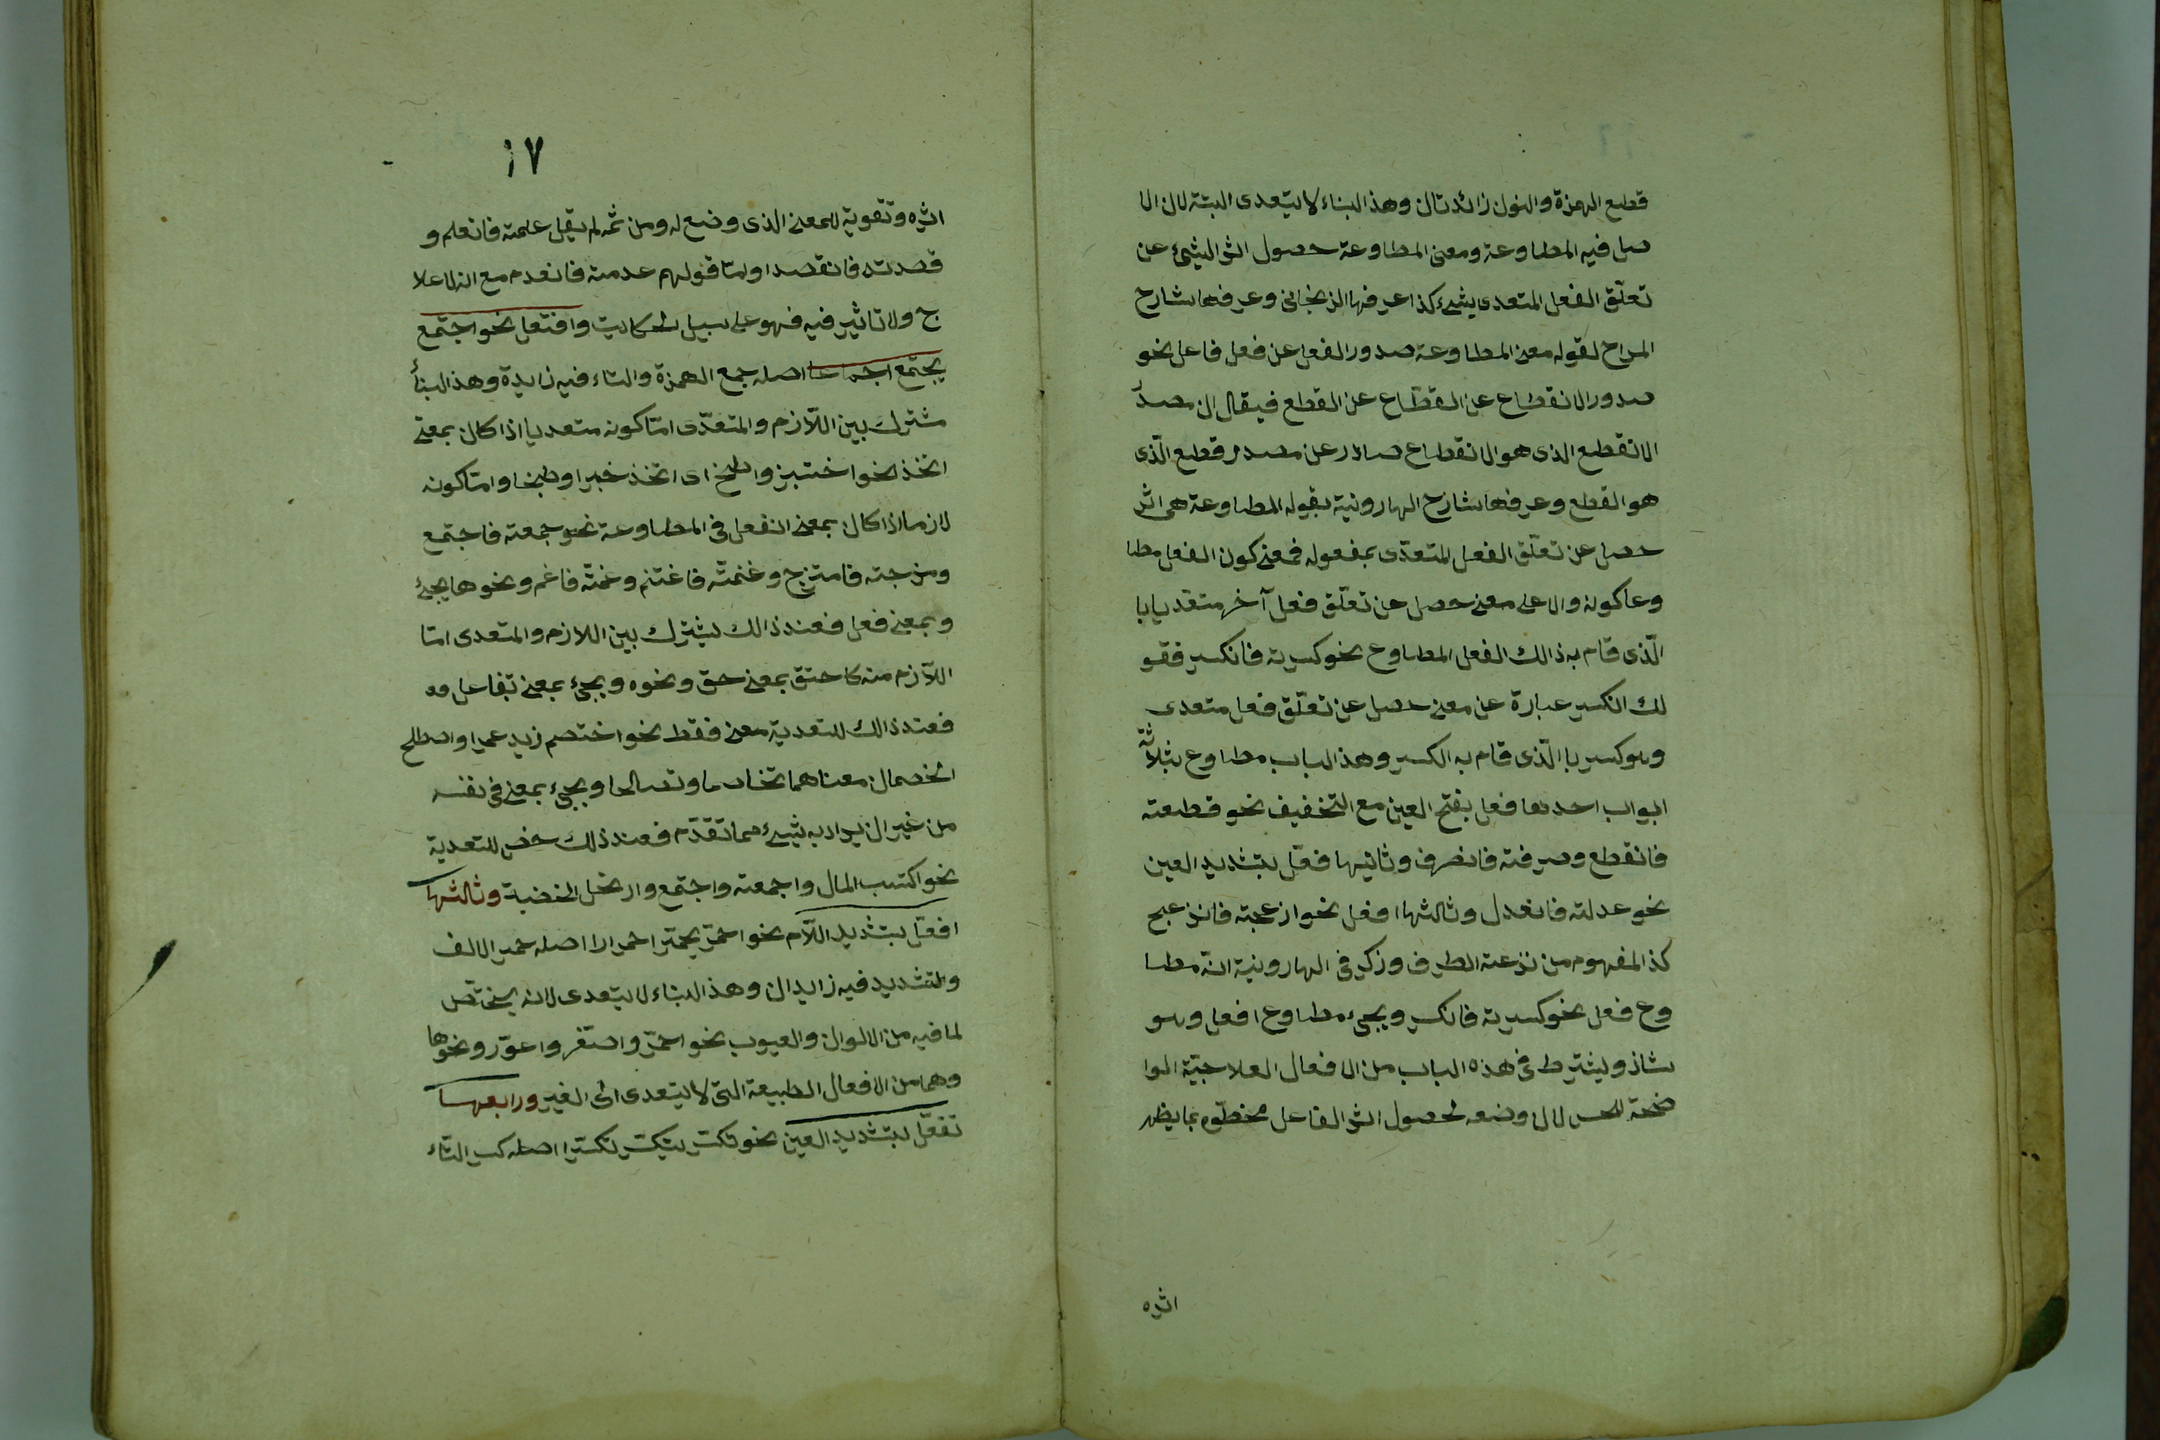 قطع الهمزة والنون زائدتان وهذا البناء لا يتعدى البتة لان الا
صل فيه المطاوعة ومعنى المطاوعة حصول اثر الشيئ عن
تعلّق الفعل المتعدى بشيئ كذا عرفها الزنجانى وعرفها شارح
المراح لقوله معنى المطاوعة صدور الفعل عن فعل فاعل نحو
صدور الانقطاع عن القطّاع عن القطع فيقال ان مصدر
الانقطع الذى هو الانقطاع صادر عن مصدر قطع الّذى
هو القطع وعرفها شارح الهارونية بقوله المطاوعة هى اثر
حصل عن تعلّق الفعل المتعدّى بمفعوله فمعنى كون الفعل مطا
وعا كونه دالا على معنى حصل عن تعلّق فعل آخر متعديا با
الّذى قام به ذالك الفعل المطاوع نحو كسرته فانكسر فقو
لك انكسر عبارة عن معنى حصل عن تعلّق فعل متعدى
وهو كسر با الّذى قام به الكسر وهذا الباب مطاوع ثلاثة
ابواب احدها فعل بفتح العين مع التخفيف نحو قطعته
فانقطع وصرفته فانصرف وثانيها فعّل بتشديد العين
نحو عدلته فانعدل وثالثها افعل نحو ازعجته فانزعج
كذا المفهوم من نزعة الطرف وذكر فى الهارونية انّه مطا
وع فعل نحو كسرته فانكسر ويجيء مطاوع افعل وهو
شاذ ويشترط فى هذه الباب من الافعال العلاجيّة الوا
ضحة للحس لان وضعه لحصول اثر الفاعل فخصّوه بما يظهر
اثره
١٧
اثره وتقوية للمعنى الذى وضع له ومن ثمّه لم يقل علمته فانعلم و
قصدته فانقصد اولما قولهم عدمته فانعدم مع انه لا علا
ج ولا تاثير فيه فهو على سبيل الحكايت وافتعل نحو اجتمع
يجتمع اجتماعا اصله جمع الهمزة والتاء فيه زايدة وهذا البناء
مشترك بين اللّازم والمتعدّى امّا كونه متعديا اذا كان بمعنى
اتخذ نحو اختبز واطبخ اى اتخذ خبزا وطبخا وامّا كونه
لازما اذا كان بمعنى انفعل فى المطاوعة نحو جمعته فاجتمع
ومزجته فامتزج وغنمته فاغتنم وغمّته فاغم ونحوها يجيئ
وبمعنى فعل فعند ذالك يشترك بين اللازم والمتعدى امّا
اللّازم منه كاحتق بمعنى حق ونحوه ويجيء بمعنى تفاعل
فعند ذالك للتعدية معنى فقط نحو اختصم زيد عمرا واصطلح
الخصمان معناهما تخاصما وتصالحا ويجيء بمعنى فى نفسه
من غير ان يراد به شيئ مما تقدّم فعند ذلك خص للتعدية
نحو اكتسب المال واجمعته واجتمع وارتحل الخضبة وثالثها
افعلّ بتشديد اللّام نحو احمرّ يحمرّ احمرارا اصله حمر الالف
والتشديد فيه زايدان وهذا البناء لا يتعدى لانه يختصّ
لما فيه من الالوان والعيوب نحو احمرّ واصفر واعوّر ونحوها
وهما من الافعال الطبيعة التى لا يتعدى الى الغير ورابعها
تفعّل بتشديد العين نحو تكسّر يتكسّر تكسّرا اصله كسر التاء